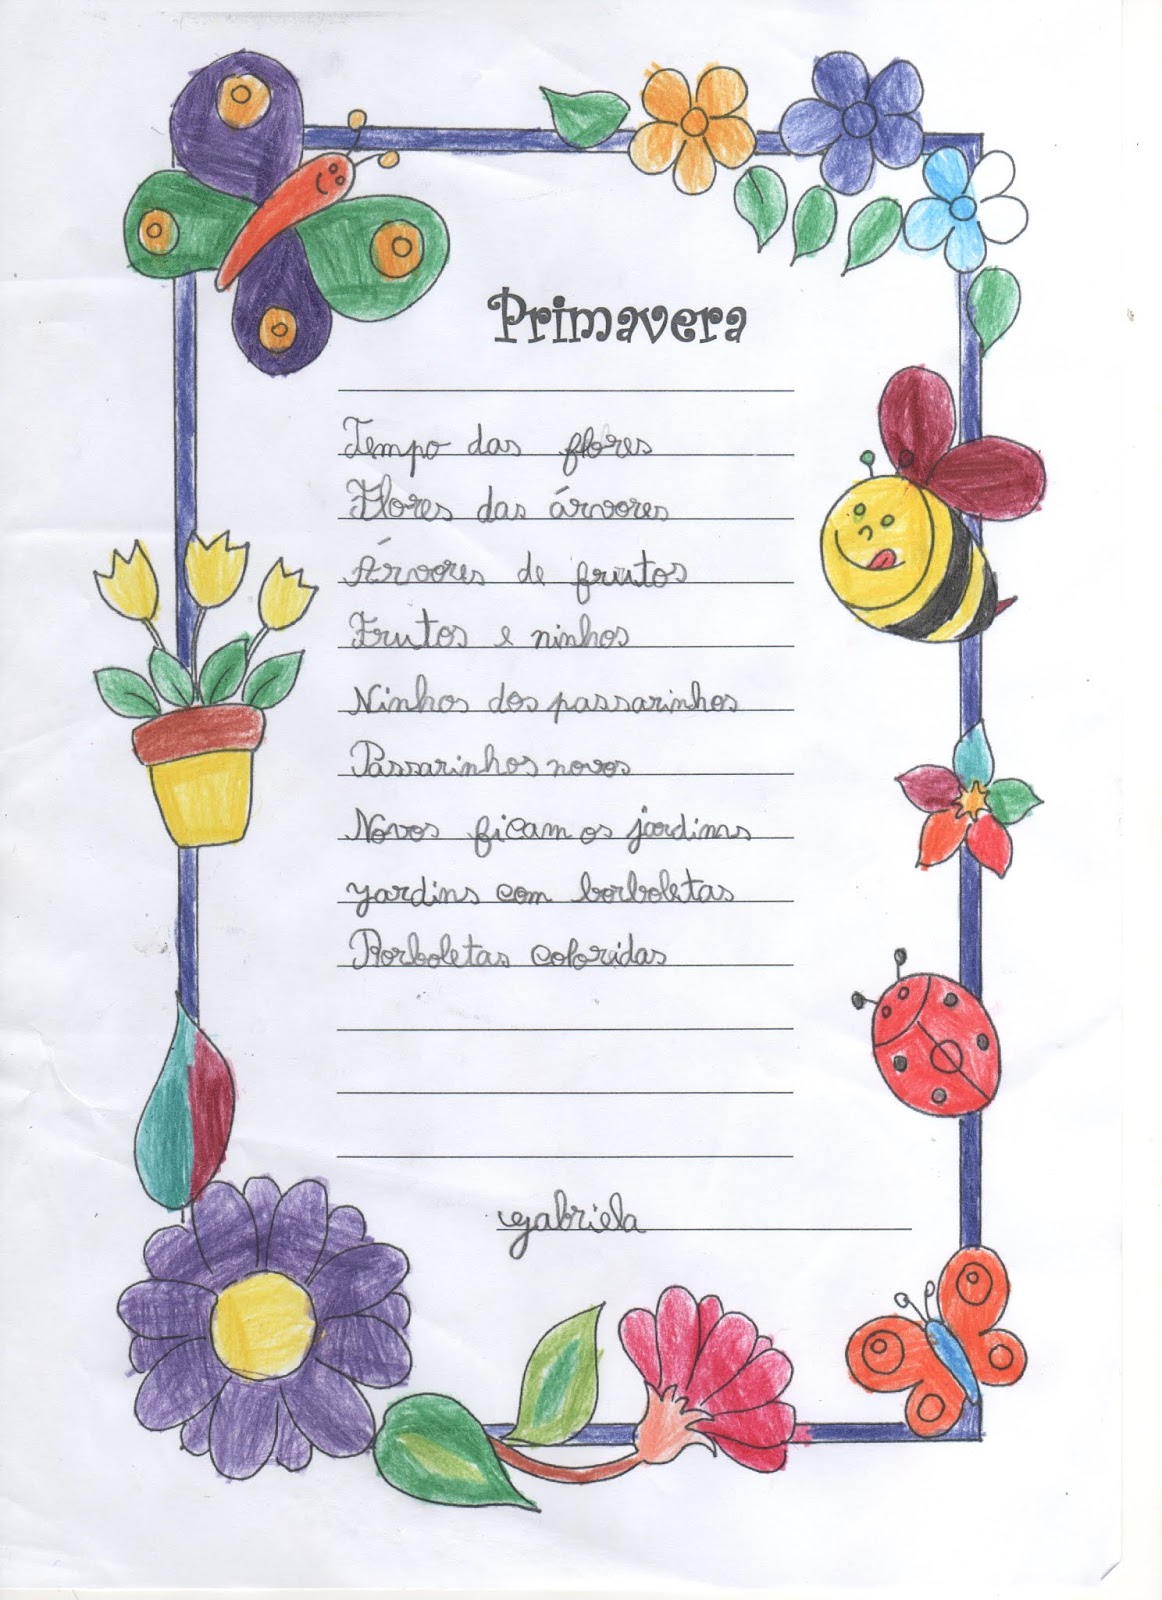 Primavera
Tempo das flores
Flores das árvores
Árvores de frutos
Frutos e ninhos
Ninhos dos passarinhos
Passarinhos novos
Novos ficam os jardins
jardins com borboletas
Borboletas coloridas
Gabriela